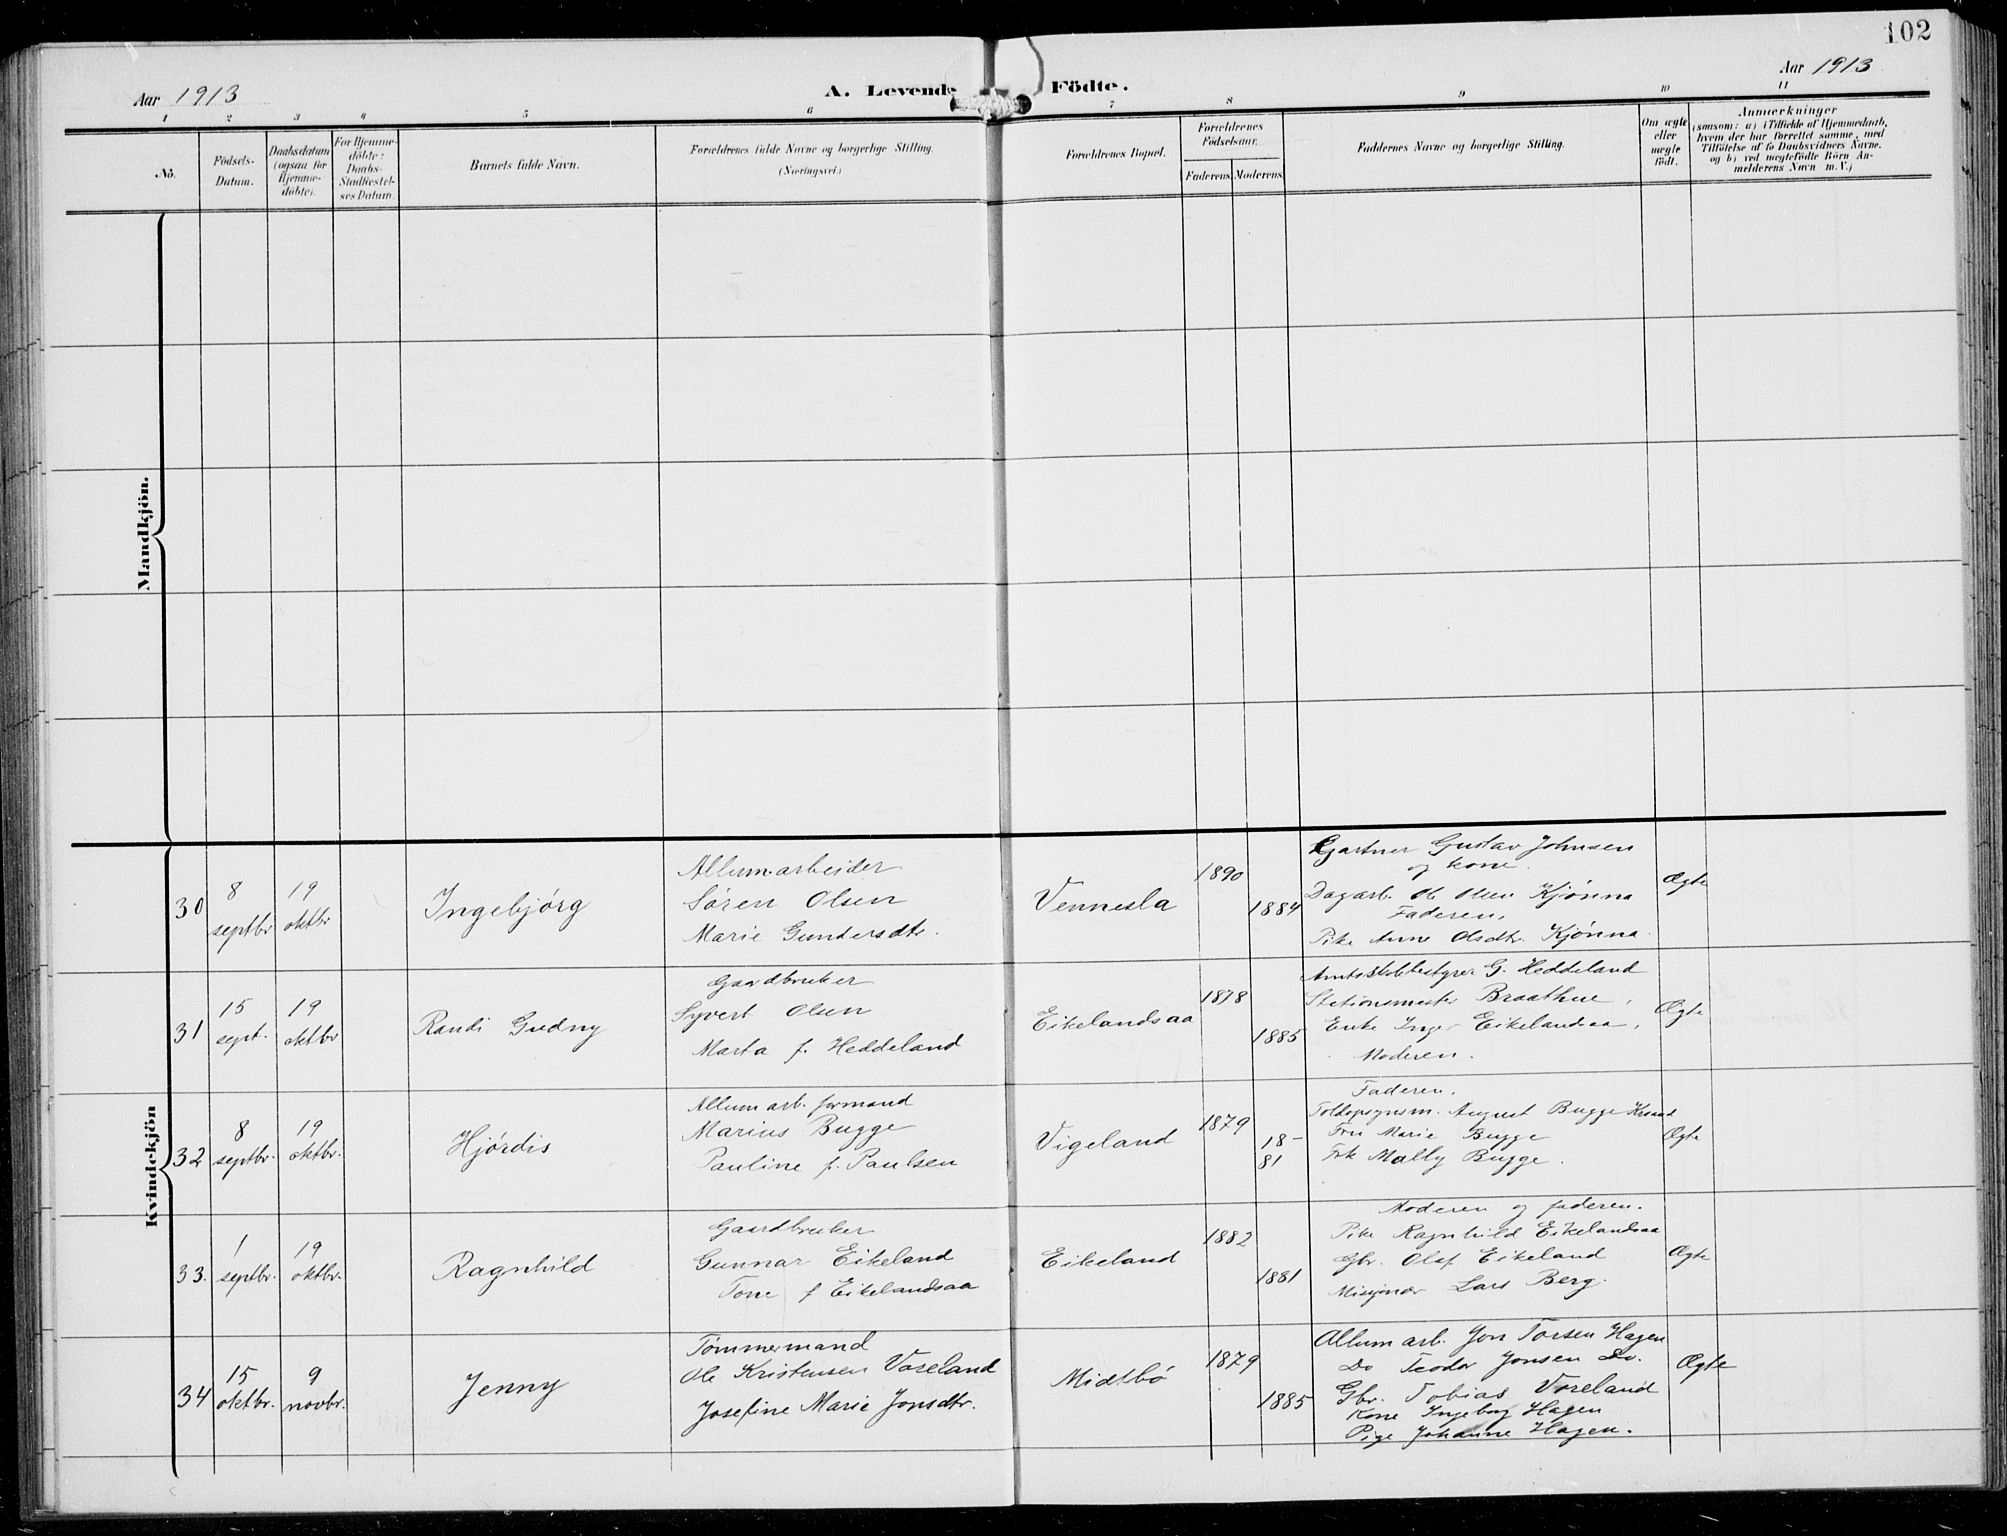 102
Aar 1913
A. Levende Födte.
Aar 1913
1 2 3 4 5 6 7 8 9 10 11
No.
Födsels-
Datum.
Daabsdatum
(ogsaa for
Hjemme-
döbte).
For Hjemme-
döbte:
Daabs-
Stadfæstel-
ses Datum
Barnets fulde Navn.
Forældrenes fulde Navne og borgerlige Stilling.
(Næringsvei.)
Forældrenes Bopæl.
Forældrenes
Födselsaar.
Faderens Moderens
Faddernes Navne og borgerlige Stilling.
Om ægte
eller
uægte
födt.
Anmærkninger
(saasom: a) i Tilfælde af Hjemmedaab,
hvem der har forrettet samme, med
Tilföielse af to Daabsvidners Navne.
og b) ved uægtefödte Börn An-
melderens Navn m. V.)
Mandkjön.
Kvindekjön
30
8
septbr
19
oktbr
Ingebjörg
Allum.arbeider
Sören Olsen
Marie Gundersdtr.
Vennesla
1890
1884
Gjartner Gustav Johnsen
og kone.
Dagarb. Ole Olsen Kjönna
Faderen.
Pike Anne Olsdtr. Kjönna
Ægte
31
15
sept.
19
oktbr
Randi Gudny
Gaardbruker
Syvert Olsen
Marta f. Heddeland
Eikelandsaa
1878
1885
Amtsskolebestyrer G. Heddeland
Stationsmester Braathue,
Enke Inger Eikelandsaa,
Moderen.
Ægte
32
8
septbr.
19
oktbr.
Hjördis
Allum arb. formand
Marius Bugge
Pauline f. Paulsen
Vigeland
1879
18-
81
Faderen,
Toldopsynsm. August Bugge Krsand
Fru Marie Bugge
Frk Mally Bugge.
Ægte
33.
1
septbr.
19
oktbr.
Ragnhild
Gaardbruker
Gunnar Eikeland
Tone f Eikelandsaa
Eikeland
1882
1881
Moderen og faderen.
Pike Ragnhild Eikelandsaa
Gbr. Olaf Eikeland
Misjonær Lars Berg.
Ægte
34
15
oktbr.
9
novbr.
Jenny
Tömmermand
Ole Kristensen Voreland
Josefine Marie Jonsdtr.
Midtbö
1879
1885
Allum arb. Jon Torsen Hagen
Do Teodor Jonsen Do.
Gbr. Tobias Voreland
Kone Ingeborg Hagen
Pige Johanne Hagen.
Ægte